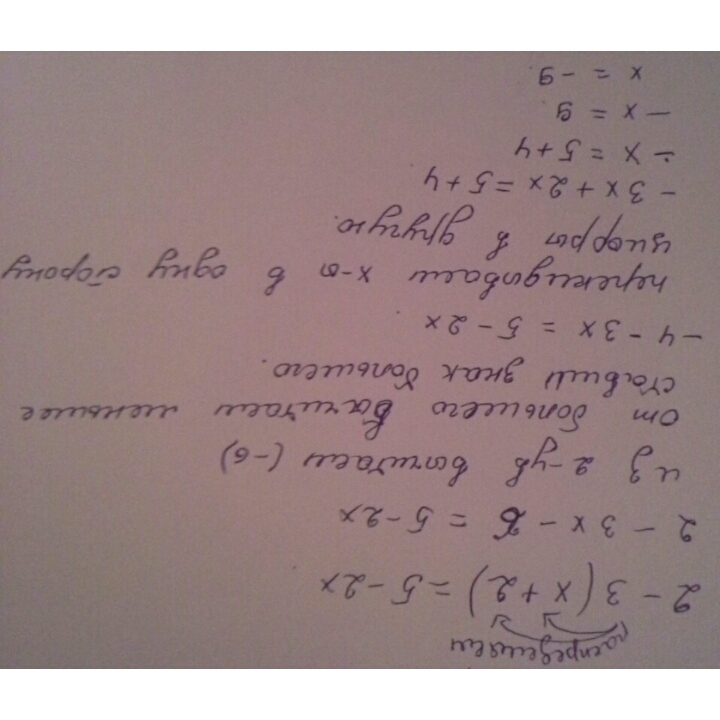 распределяем
2 - 3 (x + 2) = 5 - 2x
2 - 3x - 6 = 5 - 2x
из 2-ух вычитаем (-6)
от большего вычитаем меньшее
ставим знак большего.
-4 - 3x = 5 - 2x
перекидываем x-ы в одну сторону
цифры в другую.
-3x + 2x = 5 + 4
- x = 5 + 4
- x = 9
x = -9.